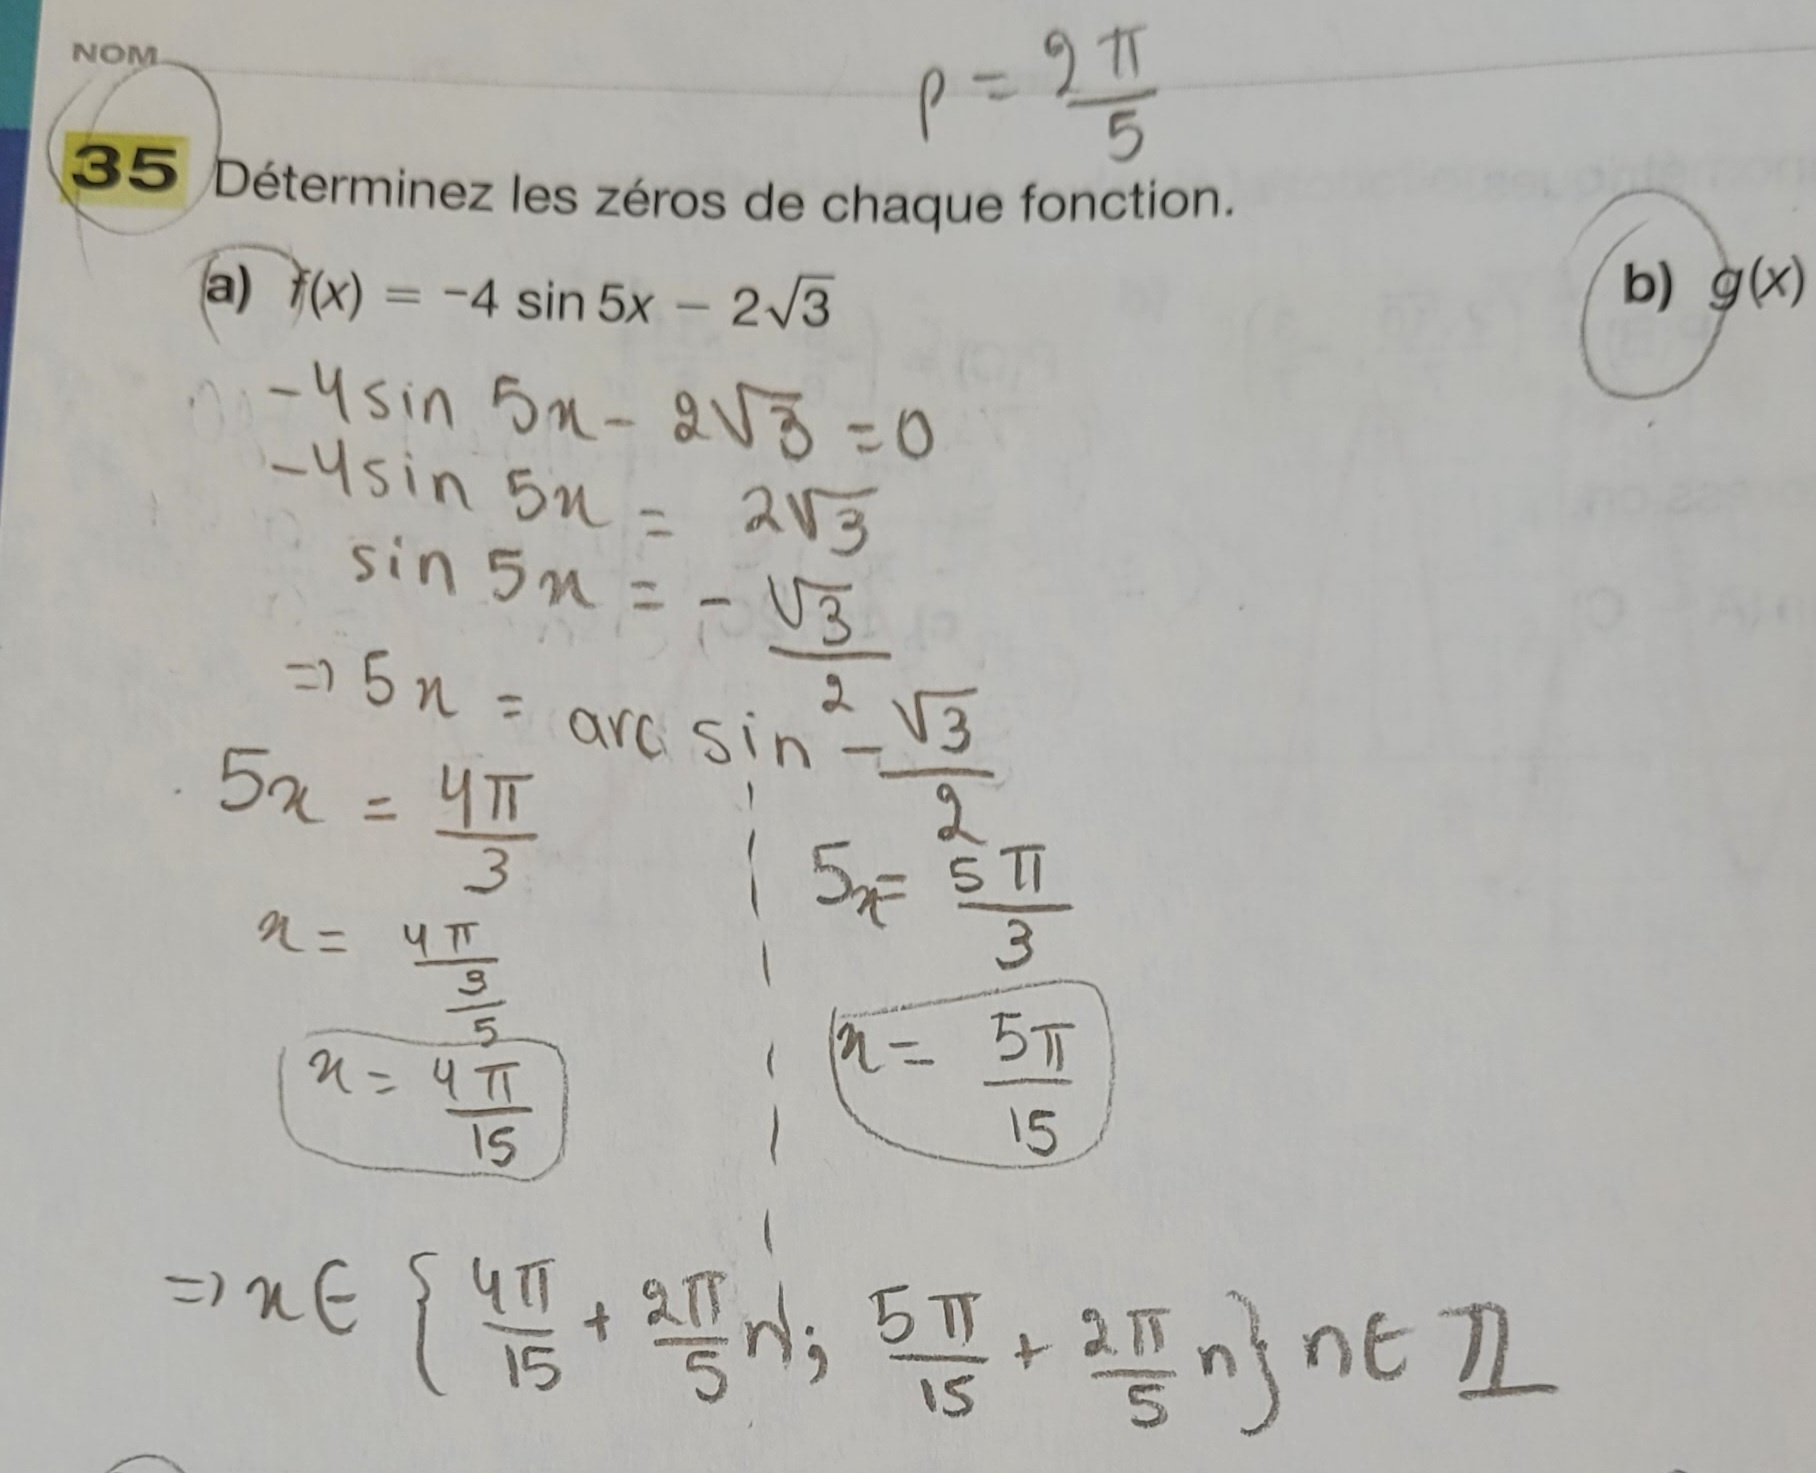 NOM
P = 2π/5
35 Déterminez les zéros de chaque fonction.
a) f(x) = -4 sin 5x - 2√3
b) g(x)
-4 sin 5x - 2√3 = 0
-4 sin 5x = 2√3
sin 5x = -√3/2
=> 5x = arc sin -√3/2
5x = 4π/3
x = 4π/3/5
x = 4π/15
5x = 5π/3
x = 5π/15
=> x ∈ {4π/15 + 2π/5 n; 5π/15 + 2π/5 n} n ∈ ℤ